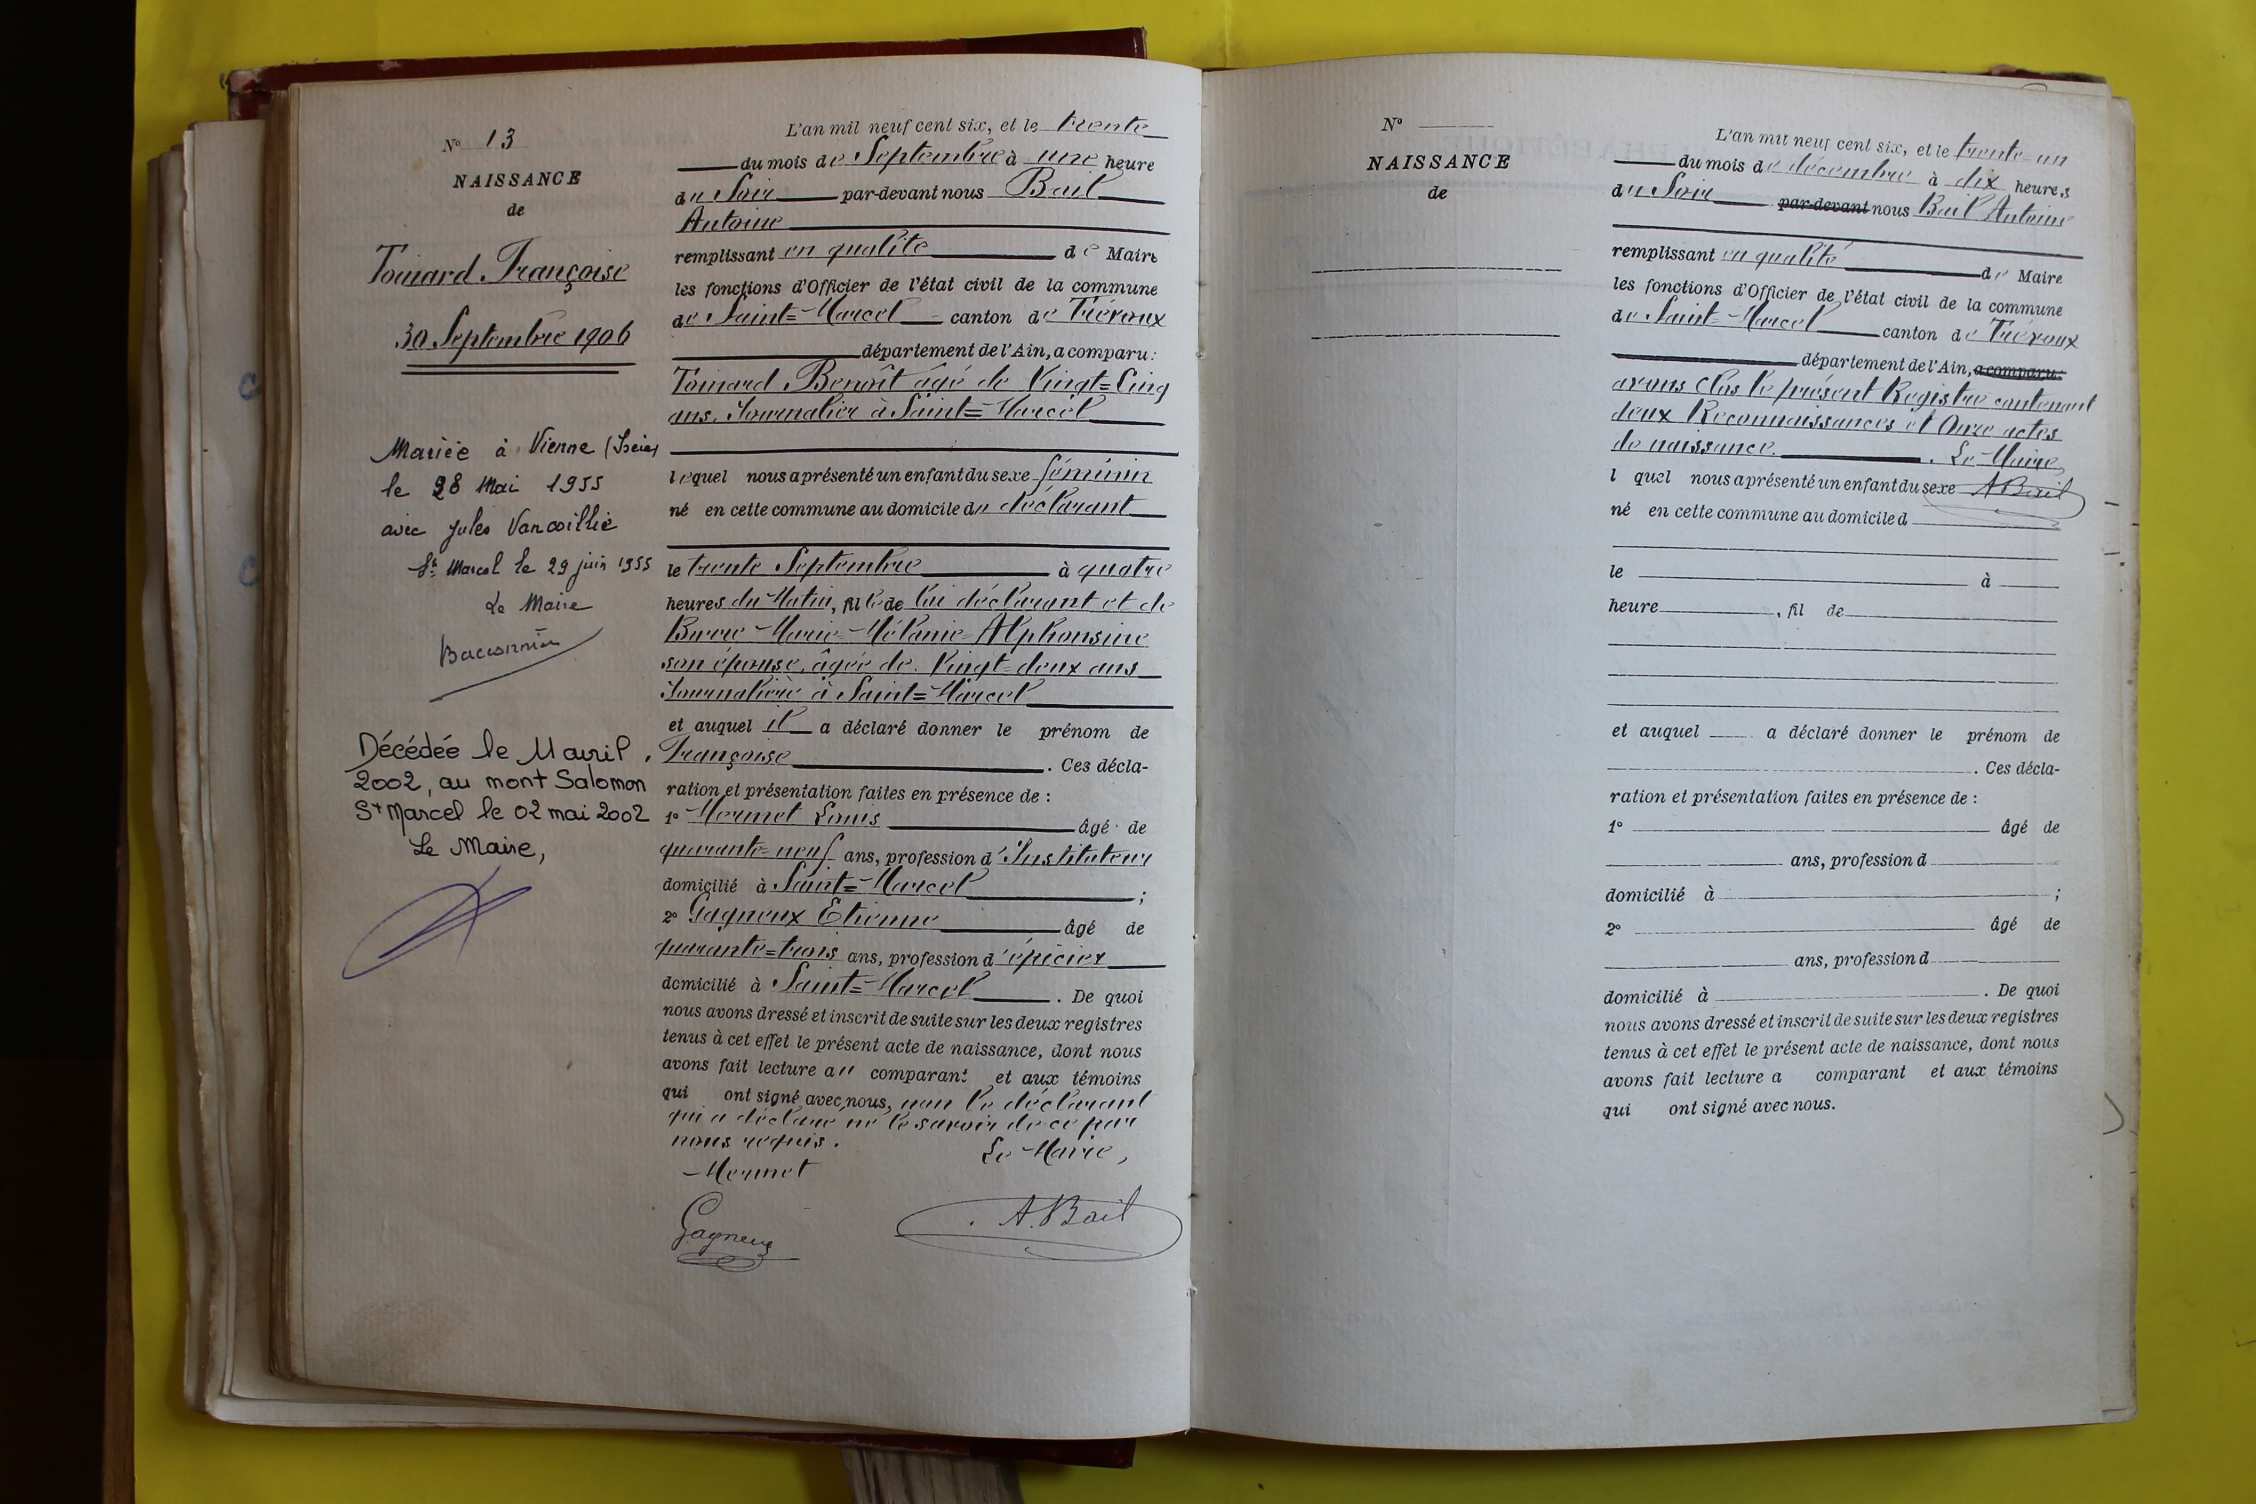 N° 13
NAISSANCE
de
Toinard Françoise
30 Septembre 1906
Mariée à Vienne (Isère)
le 28 Mai 1955
avec Jules Vanwillie
St Marcel le 29 juin 1955
Le Maire
Décédée le 11 avril
2002, au mont Salomon
St Marcel le 02 mai 2002
Le Maire,
L'an mil neuf cent six, et le trente
du mois de Septembre à une heure
du Soir par-devant nous Bail
Antoine
remplissant en qualité de Maire
les fonctions d'Officier de l'état civil de la commune
de Saint=Marcel canton de Trévoux
département de l'Ain, a comparu :
Toinard Benoît âgé de Vingt=Cinq
ans, Journalier à Saint=Marcel
lequel nous a présenté un enfant du sexe féminin
né en cette commune au domicile du déclarant
le trente Septembre à quatre
heures du Matin, fille de lui déclarant et de
Marie=Mélanie=Alphonsine
son épouse, âgée de Vingt=deux ans
Journalière à Saint=Marcel
et auquel il a déclaré donner le prénom de
Françoise. Ces décla-
ration et présentation faites en présence de :
1° Mermet Louis âgé de
quarante=neuf ans, profession d'Instituteur
domicilié à Saint=Marcel ;
2° Gagneux Etienne âgé de
quarante=trois ans, profession d'épicier
domicilié à Saint=Marcel. De quoi
nous avons dressé et inscrit de suite sur les deux registres
tenus à cet effet le présent acte de naissance, dont nous
avons fait lecture au comparant et aux témoins
qui ont signé avec nous, non le déclarant
qui a déclaré ne le savoir de ce par
nous requis.
Le Maire,
Mermet
Gagneux
A. Bail
N°
NAISSANCE
de
L'an mil neuf cent six, et le trente-un
du mois de décembre à dix heures
du Soir par-devant nous Bail Antoine
remplissant en qualité de Maire
les fonctions d'Officier de l'état civil de la commune
de Saint=Marcel canton de Trévoux
département de l'Ain, a comparu :
avons clos le présent Registre contenant
deux Reconnaissances et Onze actes
de naissance. Le Maire
l quel nous a présenté un enfant du sexe A Bail
né en cette commune au domicile d
le à
heure , fil de
et auquel a déclaré donner le prénom de
. Ces décla-
ration et présentation faites en présence de :
1° âgé de
ans, profession d
domicilié à ;
2° âgé de
ans, profession d
domicilié à . De quoi
nous avons dressé et inscrit de suite sur les deux registres
tenus à cet effet le présent acte de naissance, dont nous
avons fait lecture a comparant et aux témoins
qui ont signé avec nous.